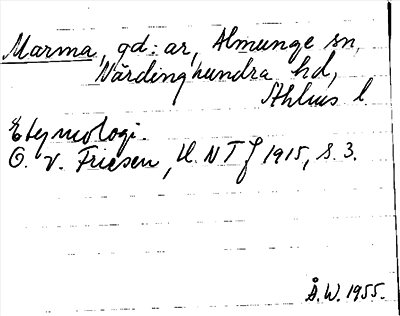 Marma, gd:ar, Almunge sn,
Närdinghundra hd,
Sthlms l.
Etymologi.
O. v. Friesen, U. NTf 1915, s. 3.
Å.W. 1955.